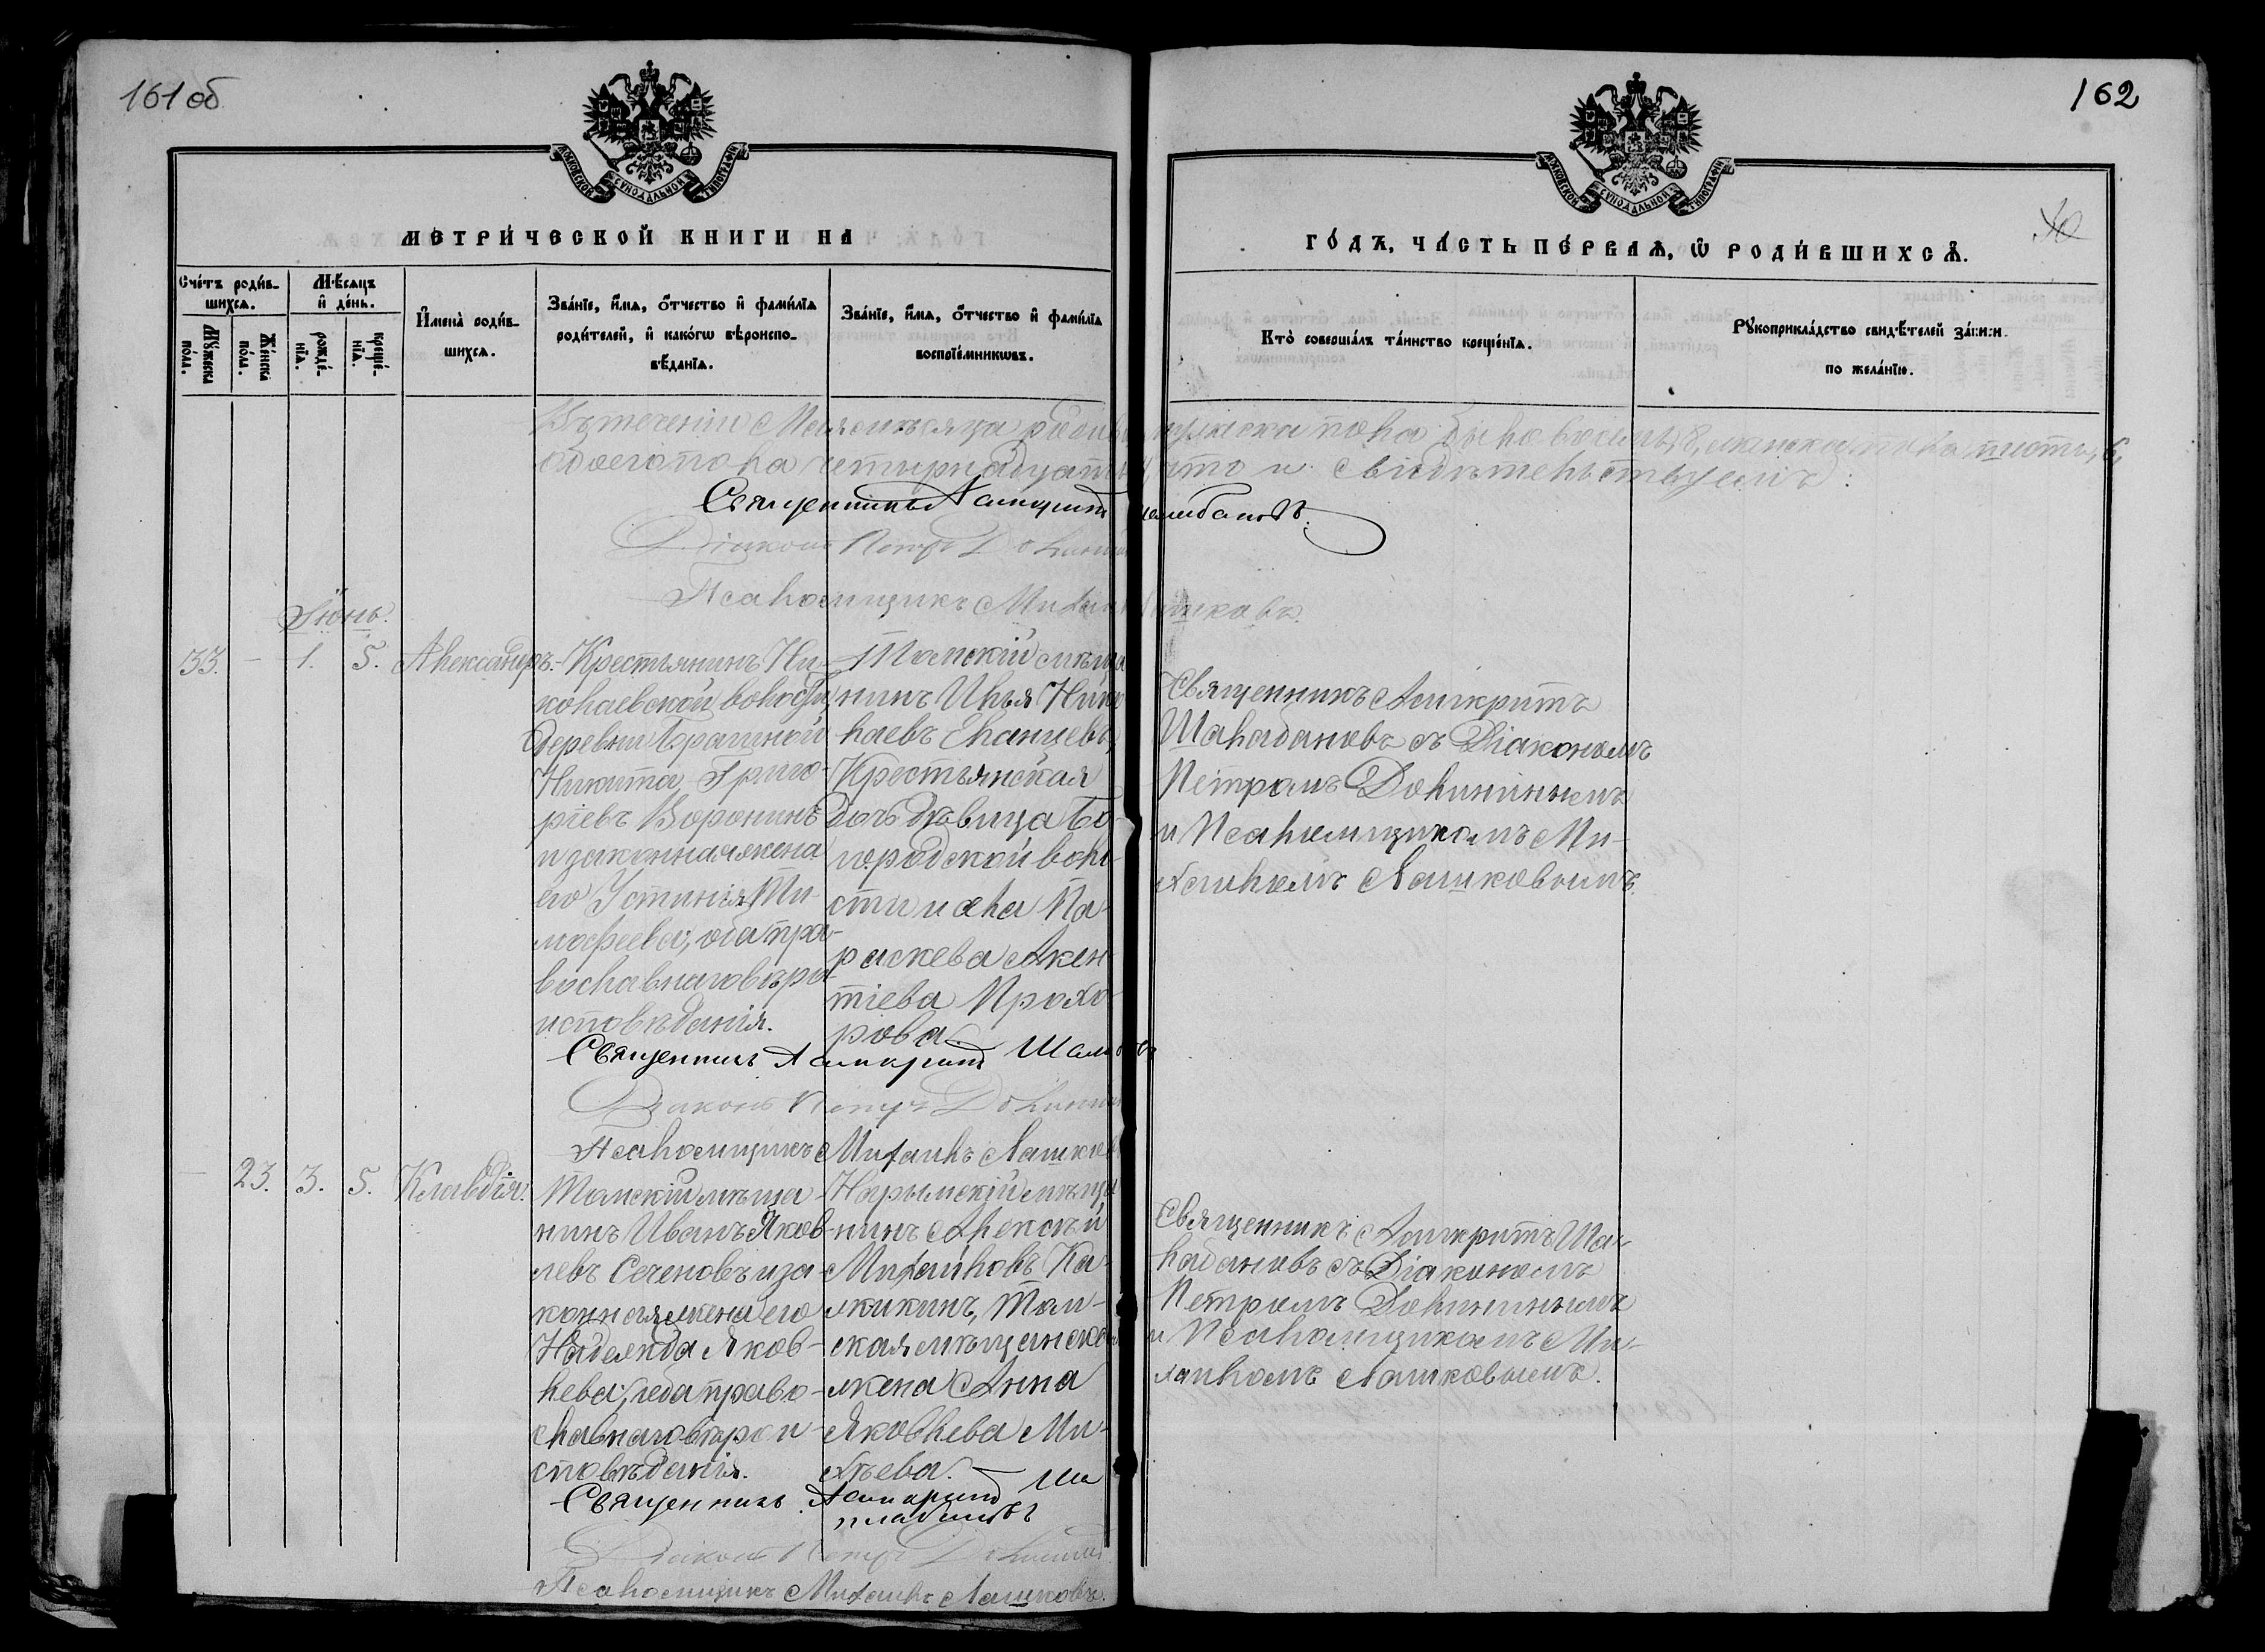 161 об
162
30
МОСКОВСКОЙ СУНОДАЛЬНОЙ ТИПОГРАФІИ
МОСКОВСКОЙ СУНОДАЛЬНОЙ ТИПОГРАФІИ
МЕТРИ́ЧЕСКОЙ КНИГИ НА
ГО́ДЪ, ЧА́СТЬ ПЕ́РВАѦ, Ѡ҆ РОДИ́ВШИХСѦ.
Сче́тъ роди́в-
шихсѧ.
Мꙋ́жеска по́ла.
Же́нска по́ла.
Мѣ́сѧцъ
и҆ де́нь.
рожде́-
нїѧ.
креще́-
нїѧ.
И҆мена̀ роди́в-
шихсѧ.
Зва́нїе, и҆́мѧ, ѻ҆́тчество и҆ фами́лїѧ
роди́телей, и҆ како́гѡ вѣроиспо-
вѣ́данїѧ.
Зва́нїе, и҆́мѧ, ѻ҆́тчество и҆ фами́лїѧ
воспрїе́мникѡвъ.
Кто̀ соверша́лъ та́инство креще́нїѧ.
Рꙋкоприкла́дство свидѣ́телей за́писи
по жела́нїю.
Въ теченіи Мая мѣсяца родив мужска пола было восемь, 8, женска пола шесть, 6,
обоего пола четырнадцать, что и свидѣтельствуемъ:
Священникъ Асинкритъ
Діаконъ Петръ Долининъ
Псаломщикъ Михаилъ Лашковъ
Іюнь.
33. - 1. 5. Александръ.
Крестьянинъ Ни-
колаевской волости,
деревни Брагиной
Никита Григо-
ріевъ Воронинъ
и законная жена
его Устинія Ти-
мофеева, оба пра-
вославнаго вѣро
исповѣданія.
Томскій мѣща
нинъ Илья Нико
лаевъ Еланцевъ,
Крестьянская
дочь дѣвица Бо-
городской воло-
сти и села Па-
раскева Акен-
тіева Прохо-
рова.
Священникъ Асинкритъ
Шалабановъ съ Діакономъ
Петромъ Долининымъ
и Псаломщикомъ Ми-
хаиломъ Лашковымъ.
Священникъ Асинкритъ
Діаконъ Петръ Долининъ
Псаломщикъ Михаилъ Лашков
- 23. 3. 5. Клавдія.
Томскій мѣща
нинъ Иванъ Яков-
левъ Сеченовъ и за-
конная жена его
Надежда Яков-
лева, оба право-
славнаго вѣро и-
сповѣданія.
Нарымскій мѣща
нинъ Алексѣй
Михайловъ Ка-
жикинъ, Том-
ская мѣщанская
жена Анна
Яковлева Ми-
хѣева.
Священникъ Асинкритъ Ша-
лабановъ съ Діакономъ
Петромъ Долининымъ
и Псаломщикомъ Ми-
хаиломъ Лашковымъ.
Священникъ Асинкритъ Ша
лабановъ
Діаконъ Петръ Долининъ
Псаломщикъ Михаилъ Лашковъ.